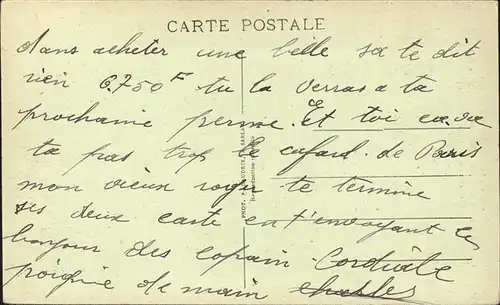 CARTE POSTALE
dans acheter une belle sa te dit
rien 6.750F tu la verras a ta
prochaine perme. Et toi ça va
ta pas trop le cafard de Paris
mon vieux roger te termine
ses deux carte en t'envoyant le
bonjour des copain. Cordiale
poignie de main Charles
PHOT.